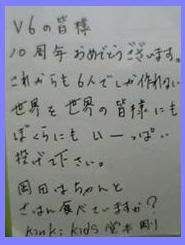 V6の皆様
10周年おめでとうございます。
これからも6人でしか作れない
世界を世界の皆様にも
ぼくらにもいーっぱい
投げて下さい。
岡田はちゃんと
ごはん食べていますか？
Kinki Kids 堂本剛